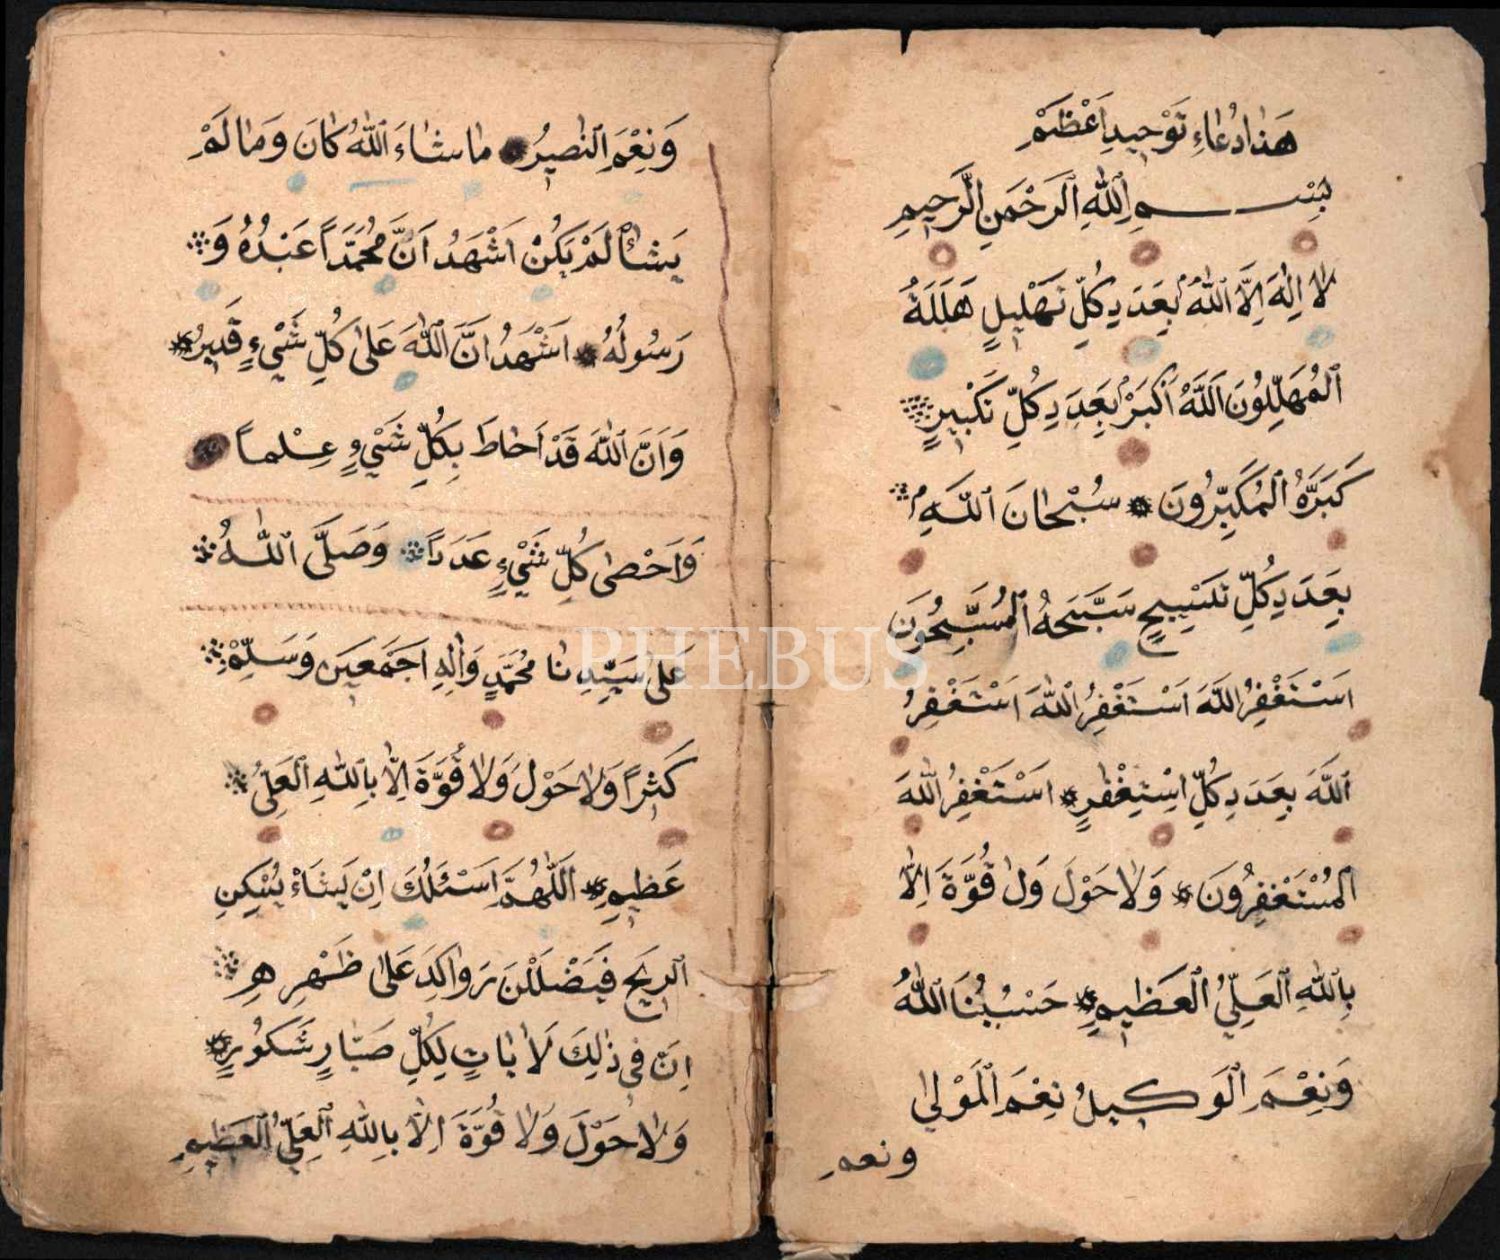 هَذَا دُعَاءِ تَوْحِيدِ اَعْظَمْ
بِسْمِ اللّٰهِ الرَّحْمَنِ الرَّحِيمِ
لَا اِلٰهَ اِلَّا اللّٰهُ بِعَدَدِ كُلِّ تَهْلِيلٍ هَلَّلَهُ
الْمُهَلِّلُونَ اَللّٰهُ اَكْبَرْ بِعَدَدِ كُلِّ تَكْبِيرٍ
كَبَّرَهُ الْمُكَبِّرُونَ سُبْحَانَ اللّٰهِ
بِعَدَدِ كُلِّ تَسْبِيحٍ سَبَّحَهُ الْمُسَبِّحُونَ
اَسْتَغْفِرُ اللّٰهَ اَسْتَغْفِرُ اللّٰهَ اَسْتَغْفِرُ
اللّٰهَ بِعَدَدِ كُلِّ اِسْتِغْفٰرٍ اَسْتَغْفِرُ اللّٰهَ
الْمُسْتَغْفِرُونَ وَلَا حَوْلَ وَلَ قُوَّةَ اِلَّا
بِاللّٰهِ الْعَلِيِّ الْعَظِيمِ حَسْبُنَا اللّٰهُ
وَنِعْمَ الْوَكِيلُ نِعْمَ الْمَوْلٰى
ونعم
وَنِعْمَ النَّصِيرُ مَا شَاءَ اللّٰهُ كَانَ وَمَا لَمْ
يَشَأْ لَمْ يَكُنْ اَشْهَدُ اَنَّ مُحَمَّدًا عَبْدُهُ وَ
رَسُولُهُ اَشْهَدُ اَنَّ اللّٰهَ عَلَى كُلِّ شَيْءٍ قَدِيرٌ
وَاَنَّ اللّٰهَ قَدْ اَحَاطَ بِكُلِّ شَيْءٍ عِلْماً
وَاَحْصٰى كُلِّ شَيْءٍ عَدَدًا وَصَلَّى اللّٰهُ
عَلَى سَيِّدِنَا مُحَمَّدٍ وَاٰلِهِ اَجْمَعِينَ وَسَلِّمْ
كَثِرًا وَلَا حَوْلَ وَلَا قُوَّةَ اِلَّا بِاللّٰهِ الْعَلِىُّ
عَظِيمِ اَللّٰهُمَّ اَسْئَلُكَ اِنْ يَشَاءْ يُسْكِنِ
الرِّيحَ فَيَضْلَلْنَ رَوَاكِدَ عَلٰى ظَهْرِهِ
اِنَّ فِى ذٰلِكَ لَاٰيَاتٍ لِكُلِّ صَبَّارٍ شَكُورٍ
وَلَا حَوْلَ وَلَا قُوَّةَ اِلَّا بِاللّٰهِ الْعَلِىِّ الْعَظِيمِ
PHEBUS